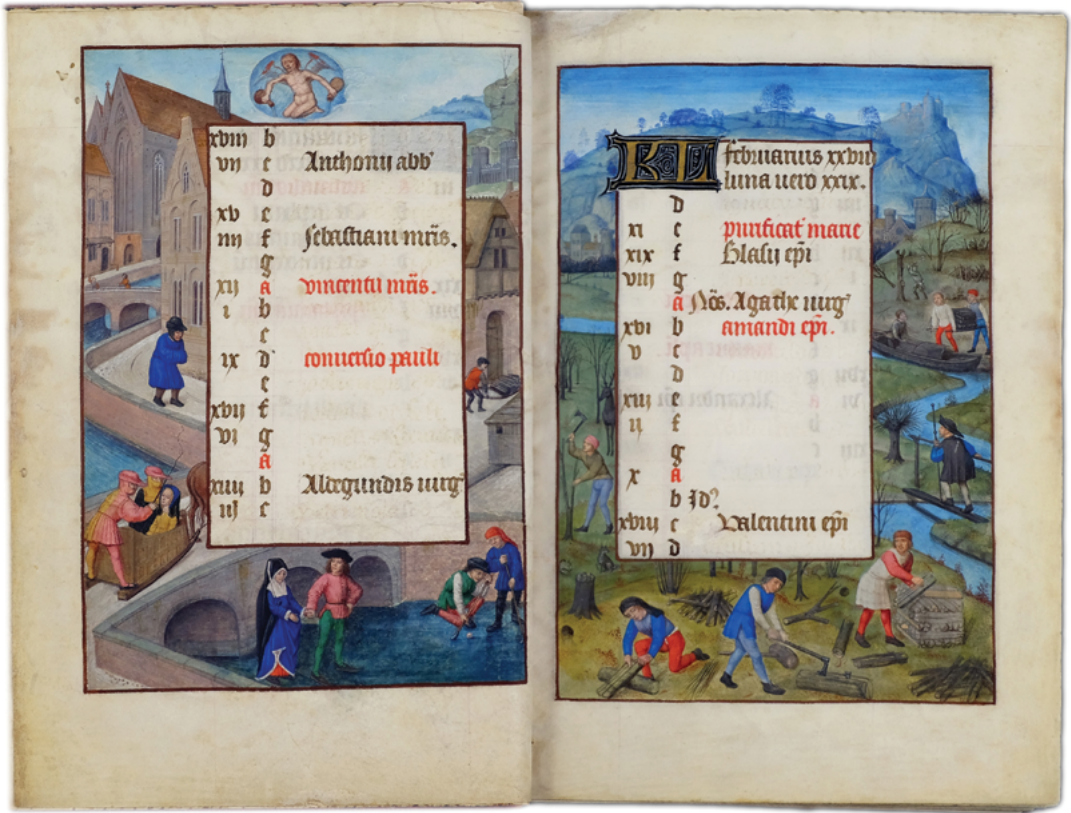 xviij b
vij c Anthonij abb
d
xv e
iiij f Sebastiani mr̄is.
g
xij a vincentij mr̄is.
i b
c
ix d conuersio pauli
e
xvij f
vi g
a
xiiij b Aldegundis uirg
iij c
KL februarius xxviij
luna uero xxix.
d
xi e purificat marie
xix f Blasij ep̄i
viij g
a Nōs. Agathe uirg
xvi b amandi ep̄i.
v c
d
xiij e
ij f
g
x a
b Id
xviij c Valentini ep̄i
vij d